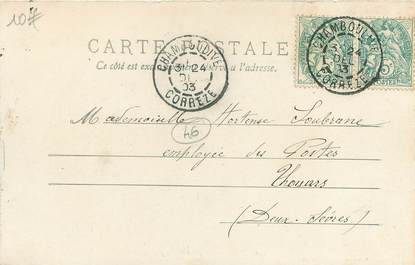 10#
CARTE POSTALE
Ce côté est exclusivement réservé à l'adresse.
CHAMBOULIVE
31 24
DEC
03
CORRÈZE
CHAMBOULIVE
31 24
DEC
03
CORRÈZE
Mademoiselle Hortense Soubrane
employée des Postes
Thouars
(Deux-Sèvres)
46